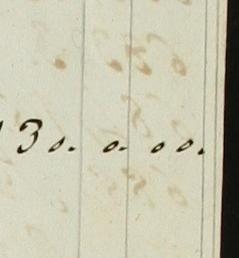 30. 0. 00.